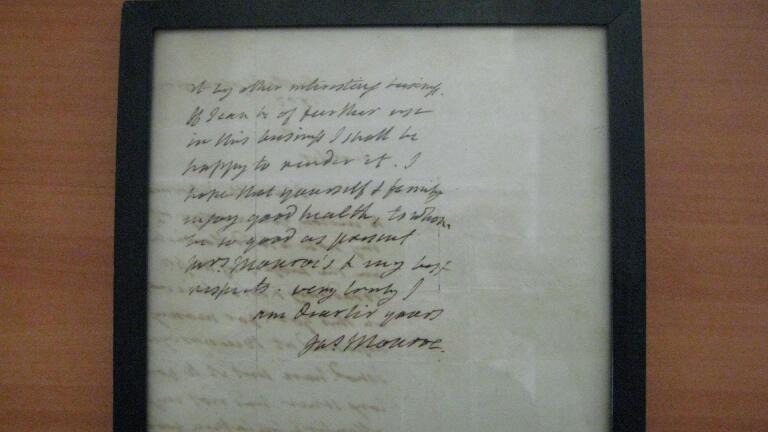 it by other interesting business.
If I can be of further use
in this business I shall be
happy to render it. I
hope that yourself & family
enjoy good health, to whom
be so good as present
Mrs. Monroe's & my best
respects. very truly I
am Dear Sir yours
Jas Monroe.